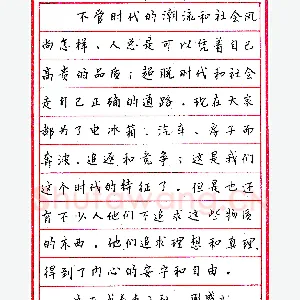 不管时代的潮流和社会风
尚怎样，人总是可以凭着自己
高贵的品质，超脱时代和社会
走自己正确的道路。现在大家
都为了电冰箱、汽车、房子而
奔波、追逐和竞争；这是我们
这个时代的特征了。但是也还
有不少人他们不追求这些物质
的东西，他们追求理想和真理
得到了内心的安宁和自由。